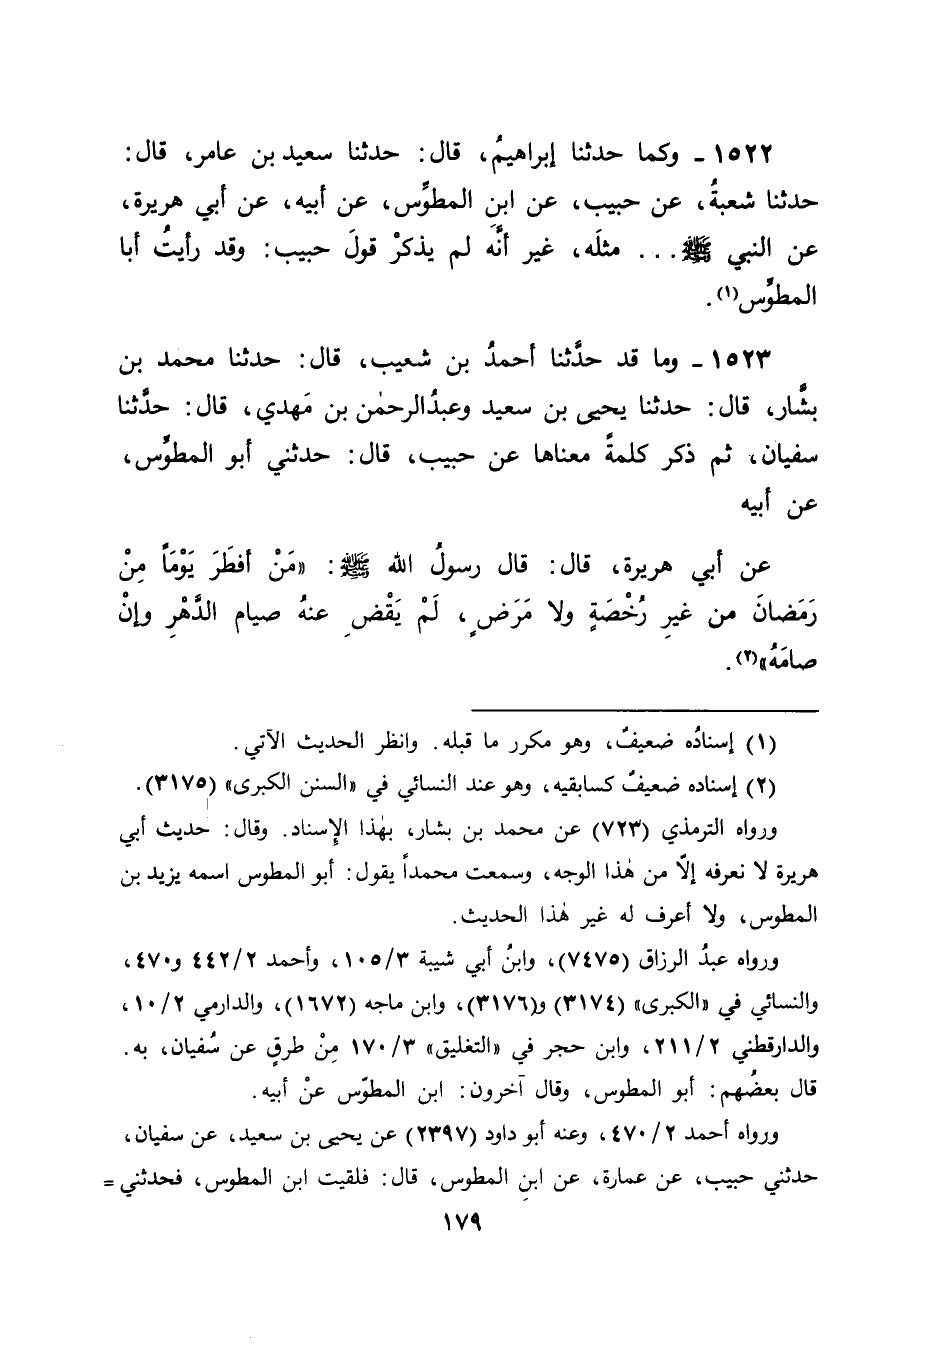 ١٥٢٢ ـ وكما حدثنا إبراهيمُ، قال: حدثنا سعيد بن عامر، قال:
حدثنا شعبةُ، عن حبيب، عن ابنِ المطوِّس، عن أبيه، عن أبي هريرة،
عن النبي ﷺ... مثلَه، غير أنَّه لم يذكرْ قولَ حبيب: وقد رأيتُ أبا
المطوِّس(١).
١٥٢٣ ـ وما قد حدَّثنا أحمدُ بن شعيب، قال: حدثنا محمد بن
بشَّار، قال: حدثنا يحيى بن سعيد وعبدُالرحمٰن بن مَهدي، قال: حدَّثنا
سفيان، ثم ذكر كلمةً معناها عن حبيب، قال: حدثني أبو المطوِّس،
عن أبيه
عن أبي هريرة، قال: قال رسولُ الله ﷺ: «مَنْ أفطَرَ يَوْمَاً مِنْ
رَمَضانَ من غيرِ رُخْصَةٍ ولا مَرَضٍ، لَمْ يَقْضِ عنهُ صيام الدَّهْرِ وإنْ
صامَهُ»(٢).
(١) إسنادُه ضعيفٌ، وهو مكرر ما قبله. وانظر الحديث الآتي.
(٢) إسناده ضعيفٌ كسابقيه، وهو عند النسائي في «السنن الكبرى» (٣١٧٥).
ورواه الترمذي (٧٢٣) عن محمد بن بشار، بهٰذا الإسناد. وقال: حديث أبي
هريرة لا نعرفه إلاّ من هٰذا الوجه، وسمعت محمداً يقول: أبو المطوس اسمه يزيد بن
المطوس، ولا أعرف له غير هٰذا الحديث.
ورواه عبدُ الرزاق (٧٤٧٥)، وابنُ أبي شيبة ١٠٥/٣، وأحمد ٤٤٢/٢ و٤٧٠،
والنسائي في «الكبرى» (٣١٧٤) و(٣١٧٦)، وابن ماجه (١٦٧٢)، والدارمي ١٠/٢،
والدارقطني ٢١١/٢، وابن حجر في «التغليق» ١٧٠/٣ مِنْ طرقٍ عن سُفيان، به.
قال بعضُهم: أبو المطوس، وقال آخرون: ابن المطوّس عنْ أبيه.
ورواه أحمد ٤٧٠/٢، وعنه أبو داود (٢٣٩٧) عن يحيى بن سعيد، عن سفيان،
حدثني حبيب، عن عمارة، عن ابنِ المطوس، قال: فلقيت ابن المطوس، فحدثني =
١٧٩